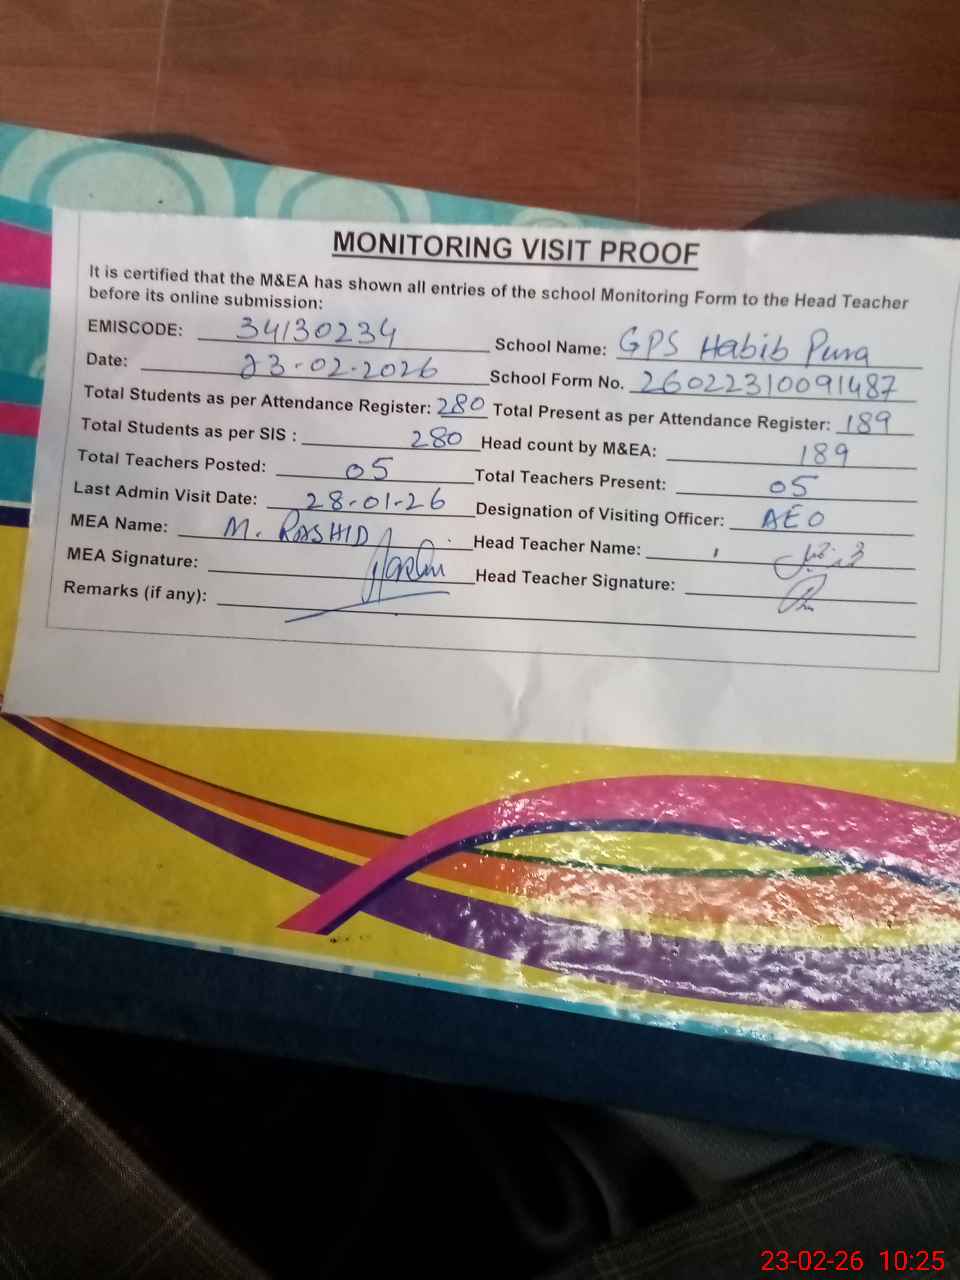 MONITORING VISIT PROOF
It is certified that the M&EA has shown all entries of the school Monitoring Form to the Head Teacher
before its online submission:
EMISCODE: 34130234 School Name: GPS Habib Pura
Date: 23-02-2026 School Form No. 26022310091487
Total Students as per Attendance Register: 280 Total Present as per Attendance Register: 189
Total Students as per SIS : 280 Head count by M&EA: 189
Total Teachers Posted: 05 Total Teachers Present: 05
Last Admin Visit Date: 28-01-26 Designation of Visiting Officer: AEO
MEA Name: M. RASHID Head Teacher Name:
MEA Signature: Head Teacher Signature:
Remarks (if any):
23-02-26 10:25